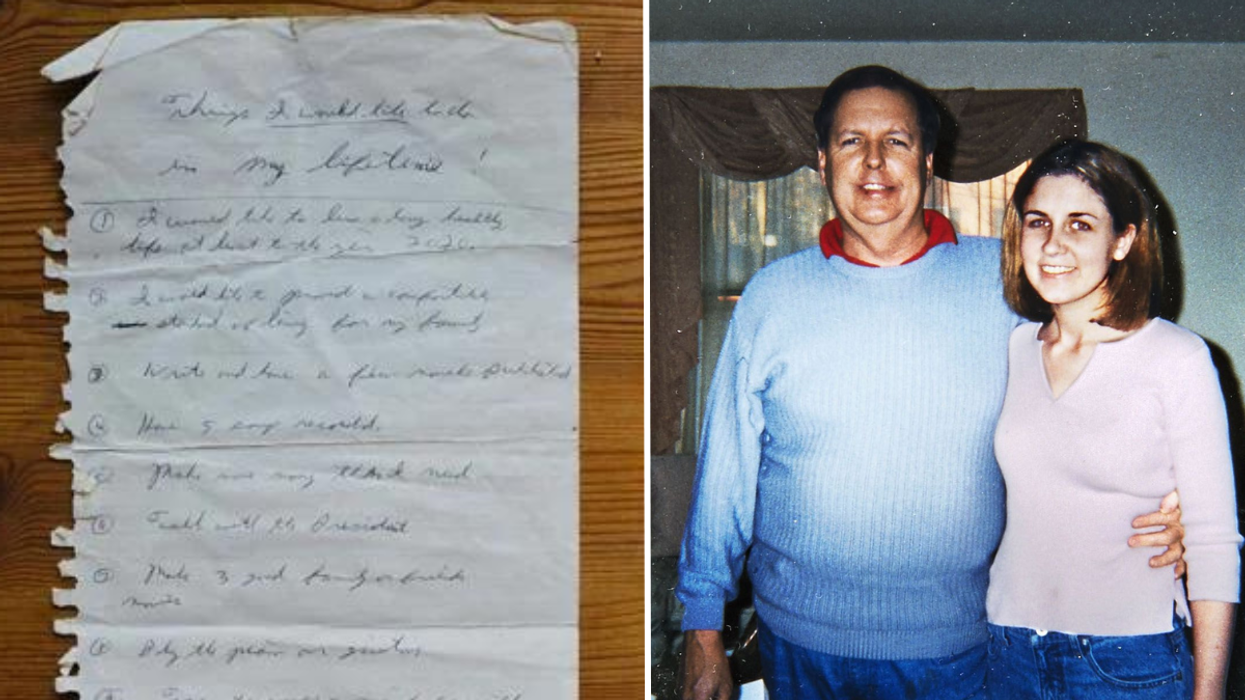 Things I would like to do
in my lifetime!
① I would like to live a long healthy
life at least to the year 2020.
② I would like to provid a comfortable
standard of living for my family
③ Write and have a few novels published
④ Have 5 songs recorded.
⑤ Make one
⑥ Talk with the President
⑦ Make 3 good family
movies
⑧ Play the piano or guitar